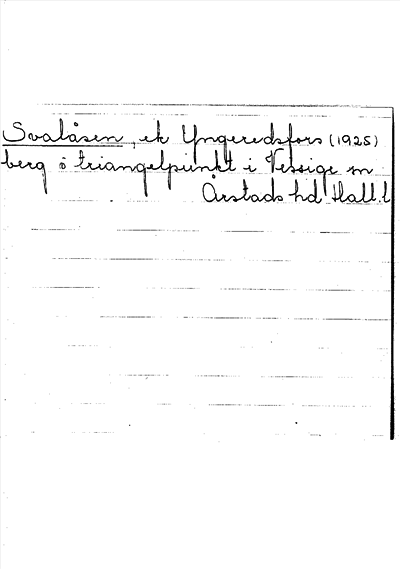 Svalåsen, ek Yngeredsfors (1925)
berg o triangelpunkt i Vessige sn
Årstads hd Hall. l